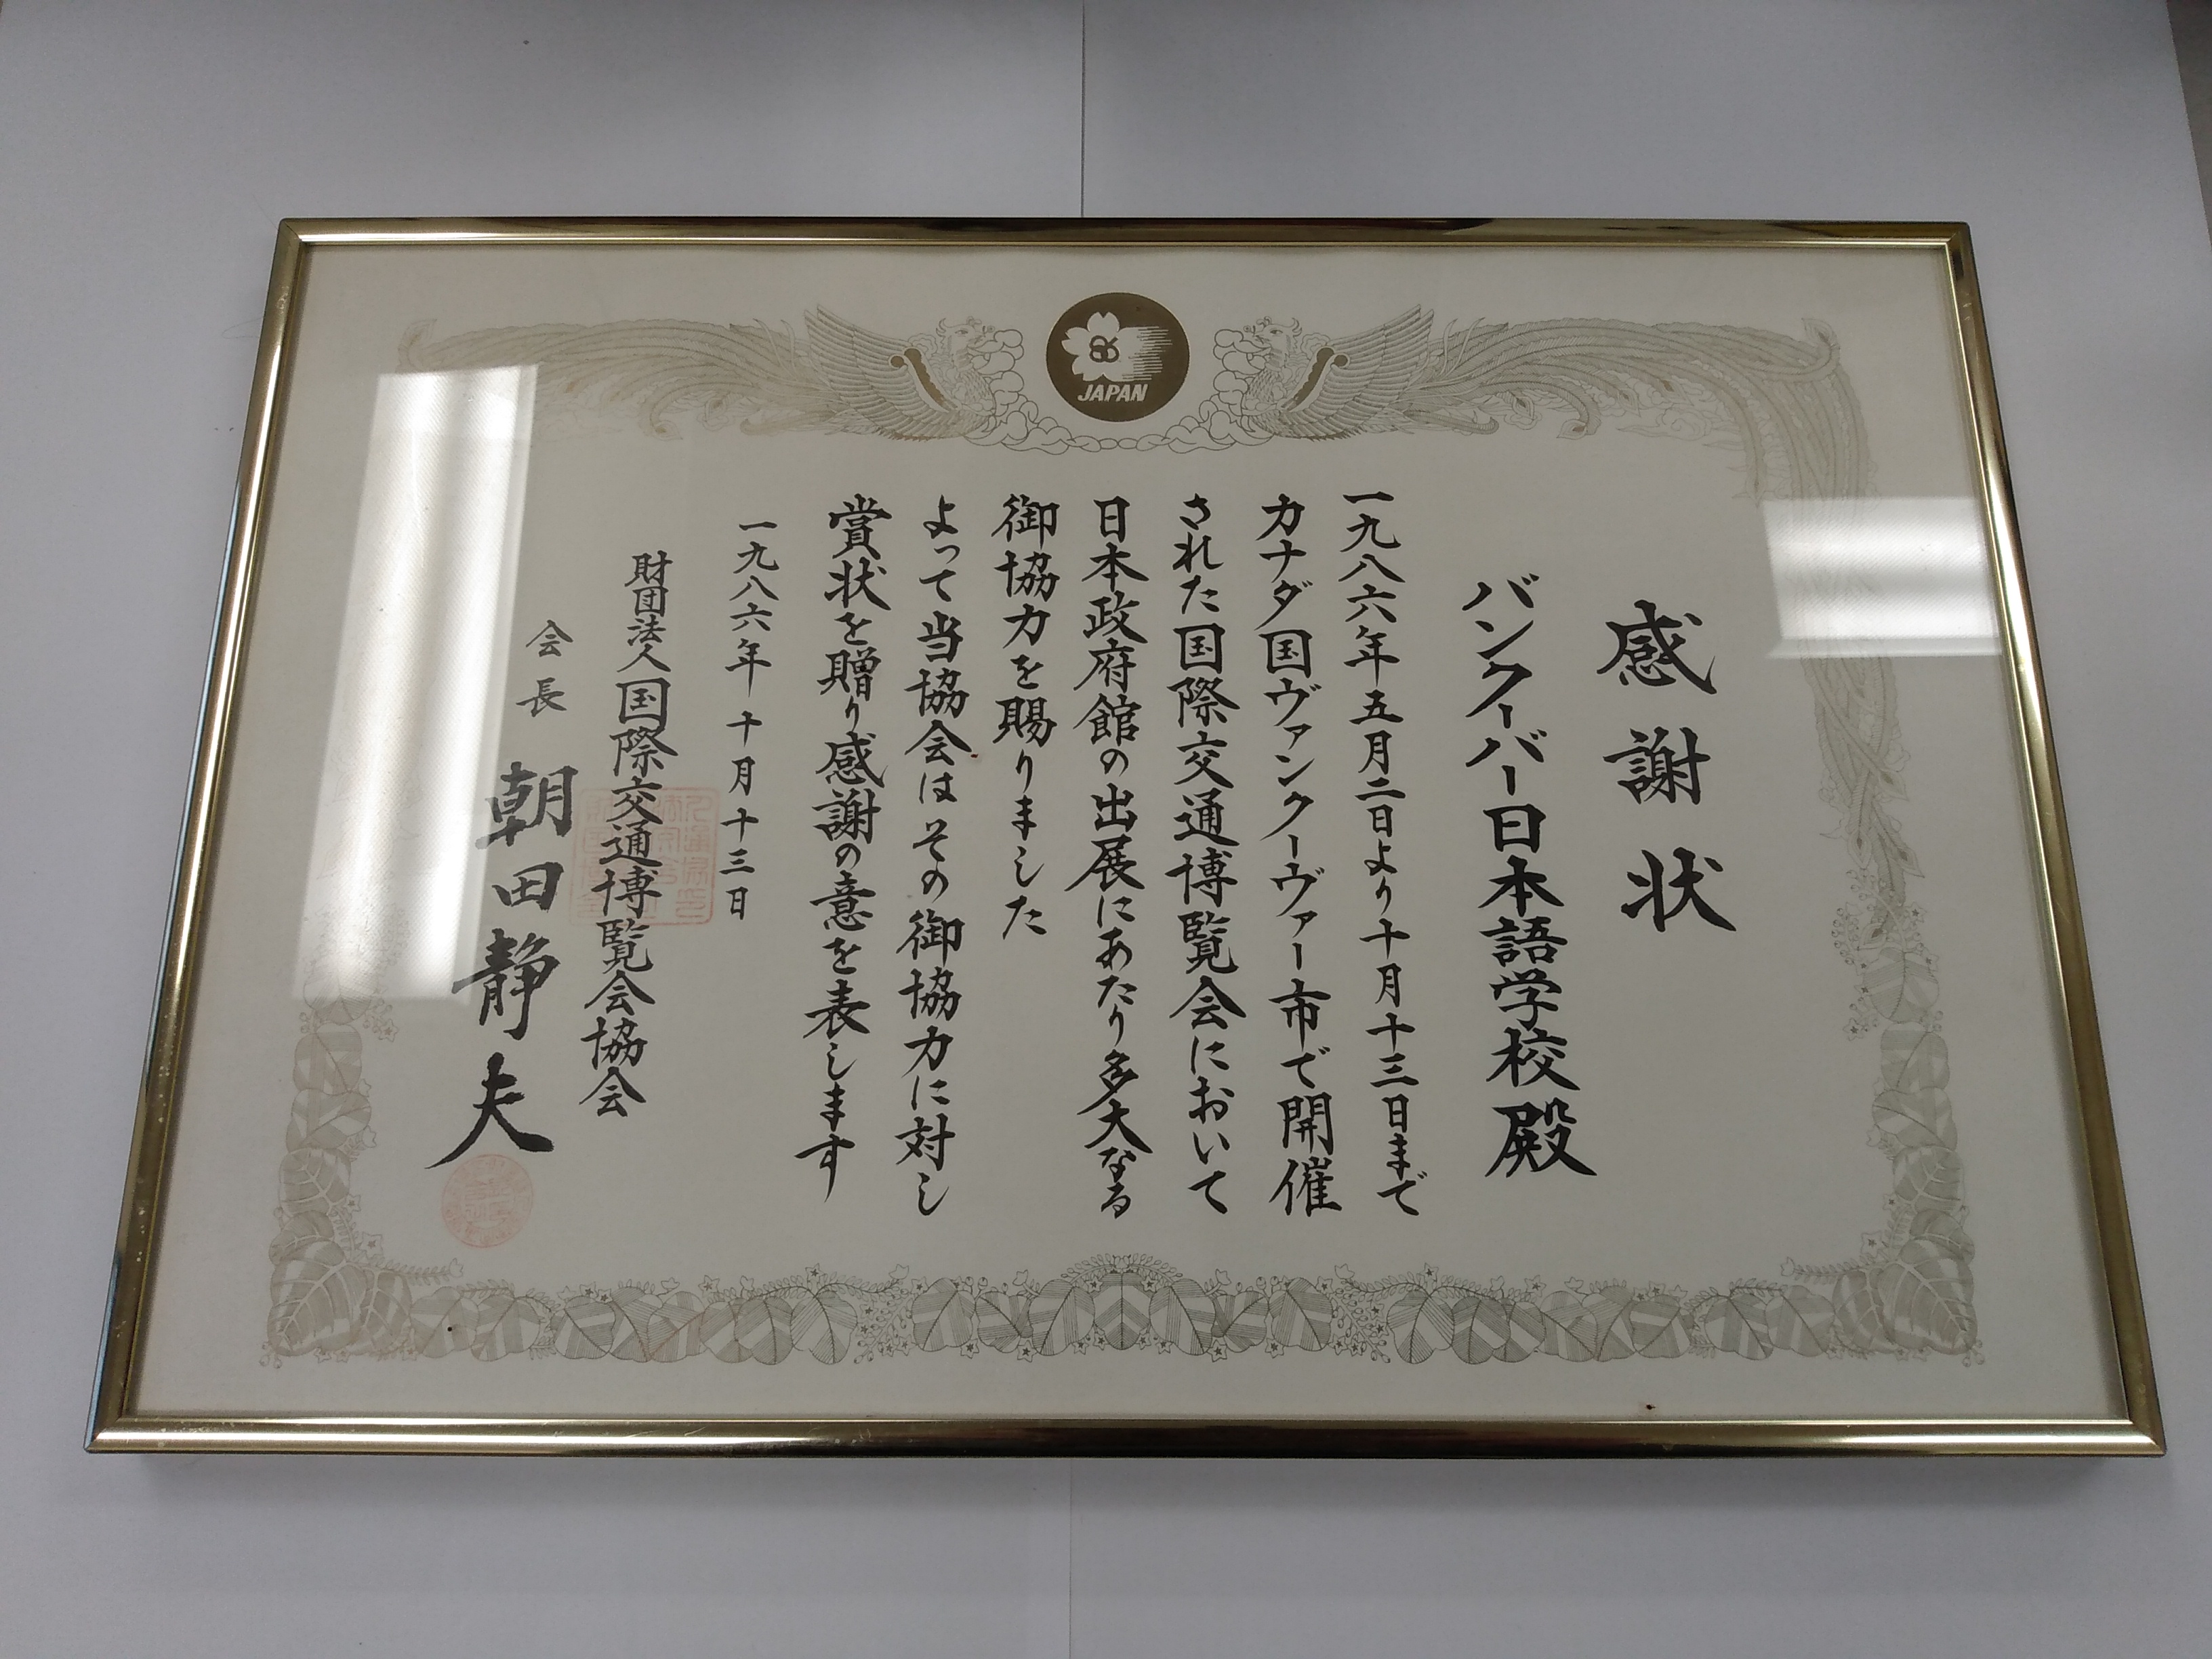 JAPAN
感謝状
バンクーバー日本語学校殿
一九八六年五月二日より十月十三日まで
カナダ国ヴァンクーヴァー市で開催
された国際交通博覧会において
日本政府館の出展にあたり多大なる
御協力を賜りました
よって当協会はその御協力に対し
賞状を贈り感謝の意を表します
一九八六年十月十三日
財団法人国際交通博覧会協会
会長 朝田静夫